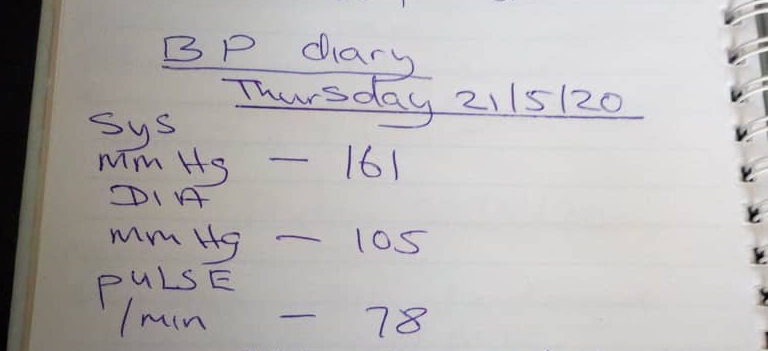 BP diary
Thursday 21/5/20
Sys
mm Hg — 161
DIA
mm Hg — 105
PULSE
/min — 78